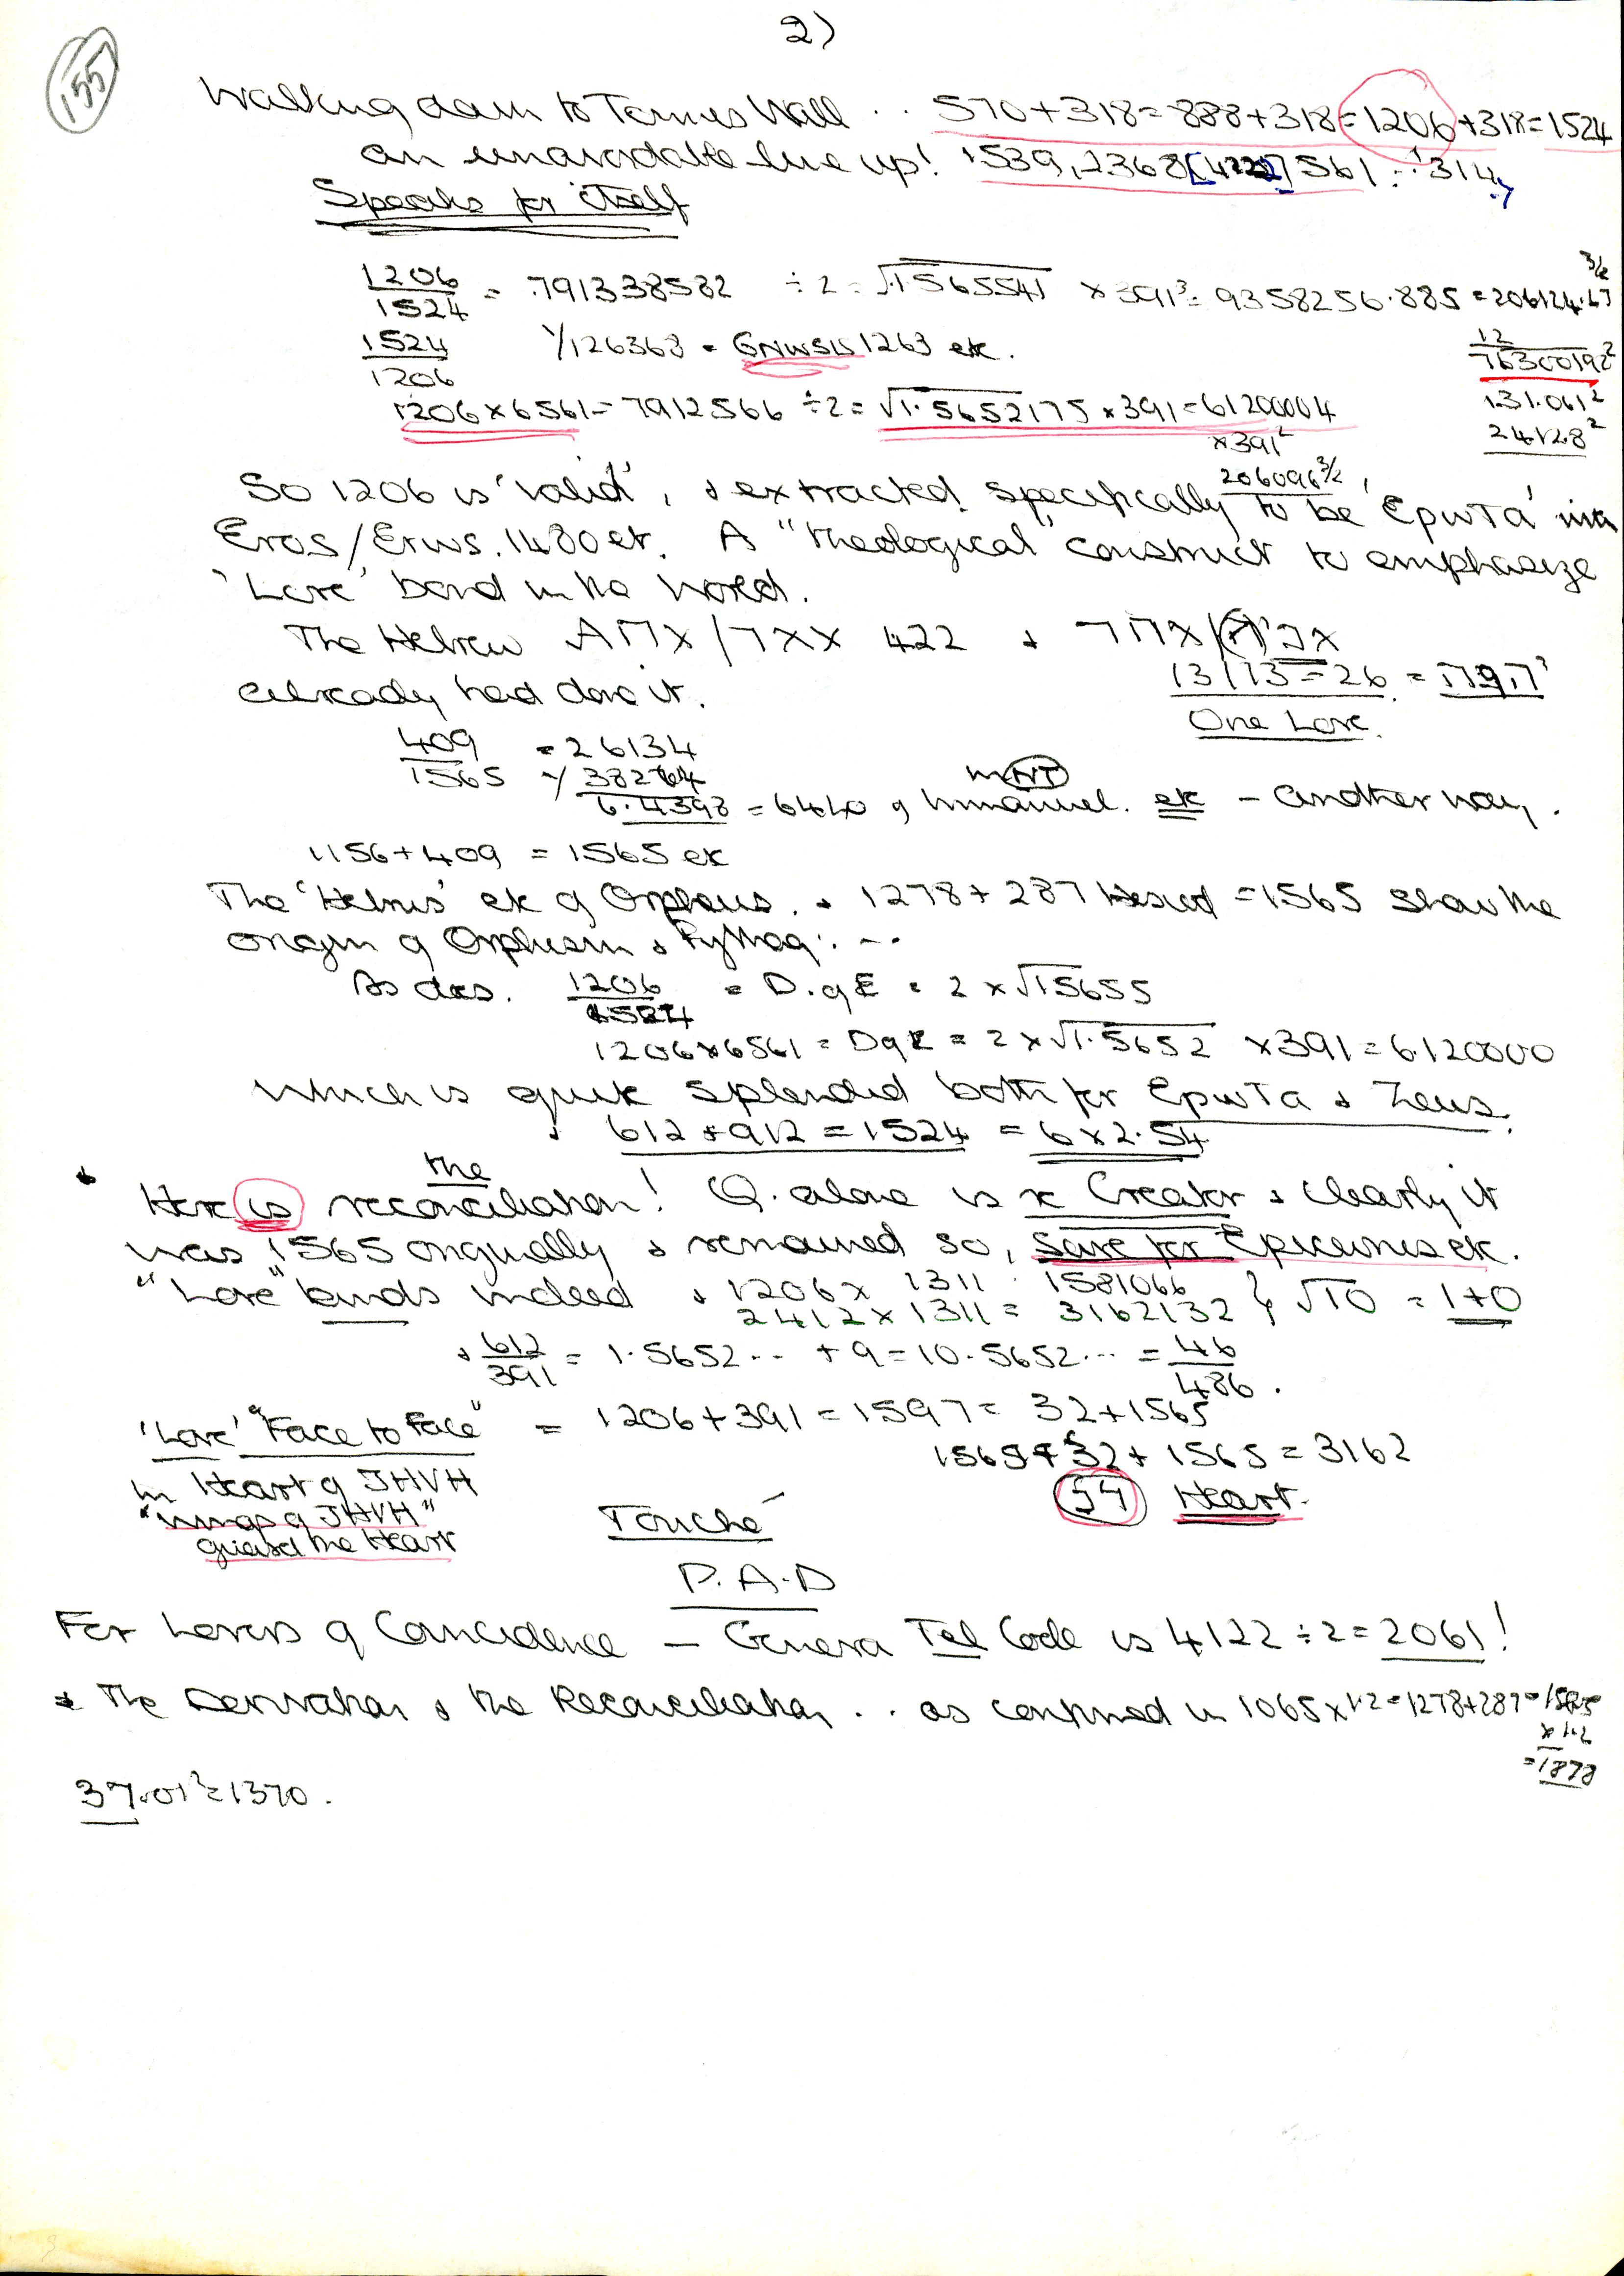 2)
155
Walking down to Termes Wall . . 570+318=888+318=1206+318=1524
an unavoidable line up! 1539, 2368 [4222] 7561 ÷ 314
Speaks for itself
1206/1524 = .791338582 ÷2 = √.1565541 × 391³ = 9358256.885 = 206124.67 3/2
1524/1206 1/126368 = GNWSIS 1263 etc.
12
76300192²
131.061²
2412.8²
1206×6561 = 7912566 ÷2 = √1.5652175 × 391 = 61200004
×391²
206096 3/2
So 1206 is 'valid', & extracted specifically to be 'ΕρωΤα' with
Eros/Erws. 1480 et. A "theological" construct to emphasize
'Love' bond in the World.
The Hebrew 422 &
already had done it.
13/13=26 = יהוה
One Love.
409/1565 = 26134
1/38264
6.4398 = 6440 of Immanuel. etc – another way.
in NT
1156+409 = 1565 etc
The 'Hebrus' etc of Orpheus. & 1278+287 Hesed = 1565 show the
origin of Orpheism & Pythag: ...
As does. 1206/1524 = D.of E = 2 × √15655
1206×6561 = D of E = 2×√1.5652 ×391=6.120000
Which is quite splendid both for ΕρωΤα & Zeus.
& 612+912=1524 = 6×2.54
Here is the reconciliation! Q. alone is x Creator & clearly it
was 1565 originally & remained so, save for Epicurus etc.
"Love" binds indeed & 1206 × 1311 : 1581066
2412 × 1311 = 3162132 } √10 = 1+0
& 612/391 = 1.5652... +9=10.5652... = 46/486.
'Love' "Face to Face" = 1206+391=1597= 32+1565
1565+32+1565=3162
in Heart of JHVH
"wings of JHVH"
guard the Heart
54 Heart.
Touché
P.A.D
For Lovers of Coincidence – Geneva Tel Code is 4122÷2=2061!
& The Derivation & the Reconciliation . . as confirmed in 1065×1.2=1278+287=1565
×1.2
=1878
37.01²=1370.